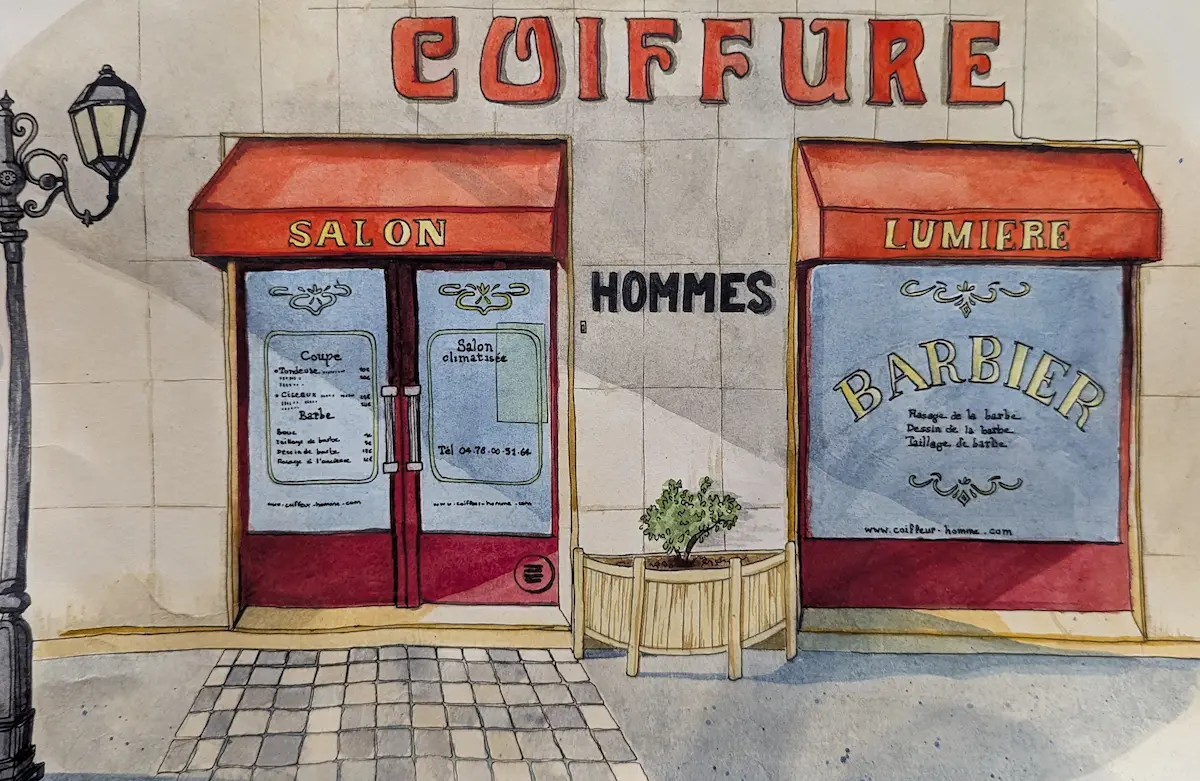 COIFFURE
SALON
LUMIERE
HOMMES
Coupe
Tondeuse
Ciseaux
Barbe
Bouc
Taillage de barbe
Dessin de barbe
Rasage à l'ancienne
www.coiffeur-homme.com
Salon
climatisée
Tél 04.78.00.51.64
www.coiffeur-homme.com
BARBIER
Rasage de la barbe
Dessin de la barbe
Taillage de barbe
www.coiffeur-homme.com